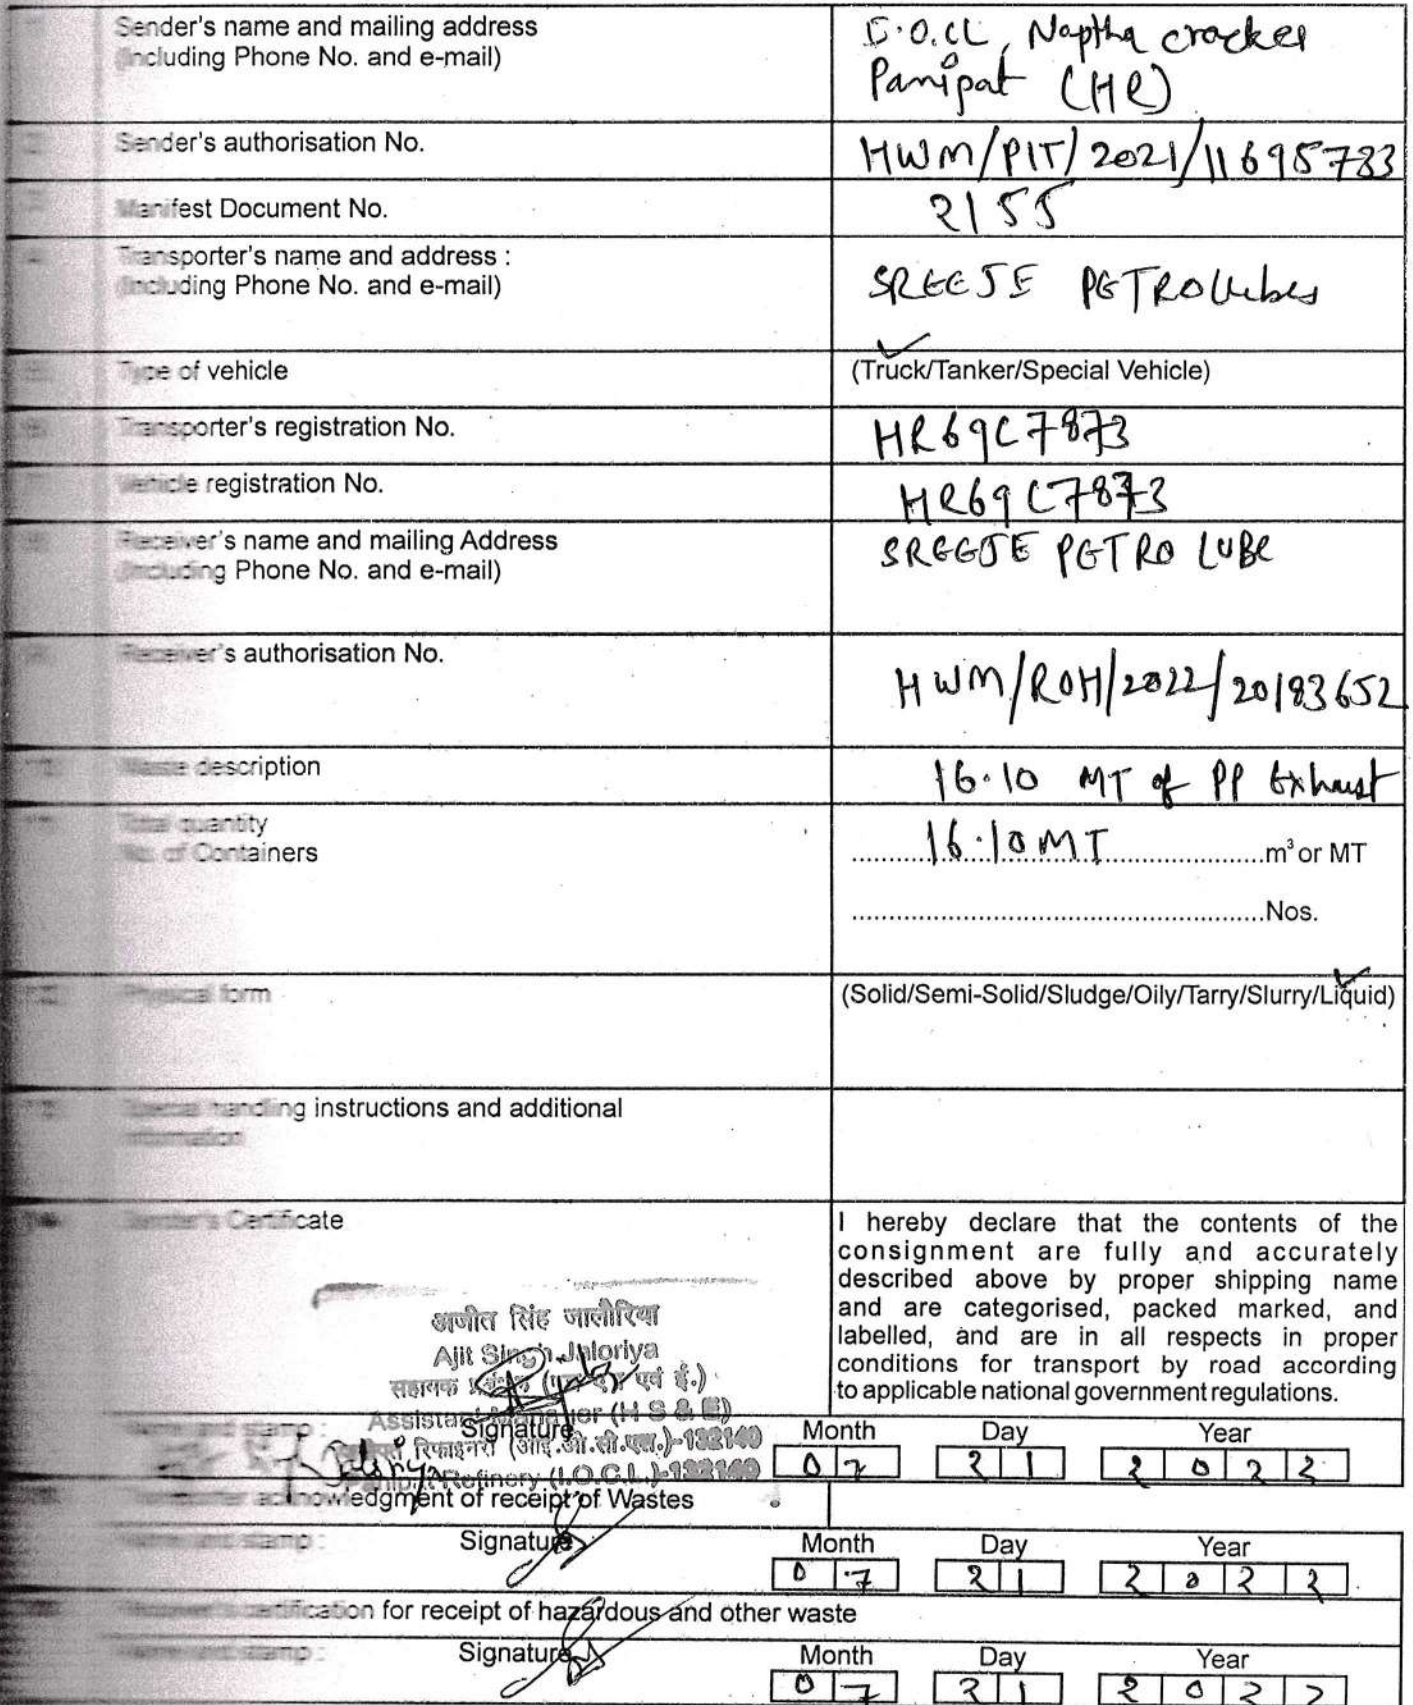 Sender's name and mailing address
(Including Phone No. and e-mail)
I.O.CL, Naptha cracker
Panipat (HR)
Sender's authorisation No.
HWM/PIT/2021/11695783
Manifest Document No.
2155
Transporter's name and address :
(Including Phone No. and e-mail)
SREEJE PETROLubes
Type of vehicle
(Truck/Tanker/Special Vehicle)
Transporter's registration No.
HR69C7873
Vehicle registration No.
HR69C7873
Receiver's name and mailing Address
(Including Phone No. and e-mail)
SREEJE PETRO LUBE
Receiver's authorisation No.
HWM/ROH/2022/20183652
Waste description
16.10 MT of PP Exhaust
Total quantity
No. of Containers
16.10 MT m³ or MT
Nos.
Physical form
(Solid/Semi-Solid/Sludge/Oily/Tarry/Slurry/Liquid)
Special handling instructions and additional
information
Sender's Certificate
I hereby declare that the contents of the
consignment are fully and accurately
described above by proper shipping name
and are categorised, packed marked, and
labelled, and are in all respects in proper
conditions for transport by road according
to applicable national government regulations.
अजीत सिंह जालौरिया
Ajit Singh Jaloriya
सहायक एवं ई.)
Assistant Manager (H S & E)
रिफाइनरी (आई.ओ.सी.एल.)-132140
Panipat Refinery (I.O.C.L.)-132140
Name and stamp : Signature Month Day Year
07 21 2022
acknowledgment of receipt of Wastes
Name and stamp : Signature Month Day Year
07 21 2022
certification for receipt of hazardous and other waste
Name and stamp : Signature Month Day Year
07 21 2022